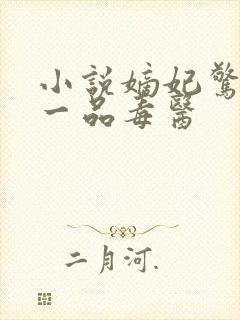 小說嫡妃驚
一品毒醫
二月河.